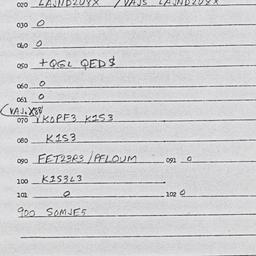 020 LAJND2U8X / VAJS LAJND2U8X
030 0
040 0
050 +QGL QED$
060 0
061 0
070 1KOPF3 K1S3
080 K1S3
090 FET23R3/PFLOUM 091 0
100 K1S3L3
101 0 102 0
900 SOMJE5